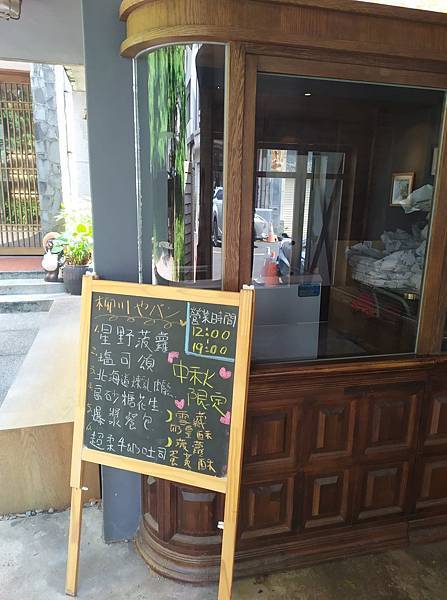 柳川やパン
營業時間
12:00
19:00
星野菠蘿
塩可頌
北海道煉乳
高砂糖花生
爆漿餐包
超柔牛奶吐司
中秋
限定
雪藏
奶皇酥
菠蘿
蛋黃酥